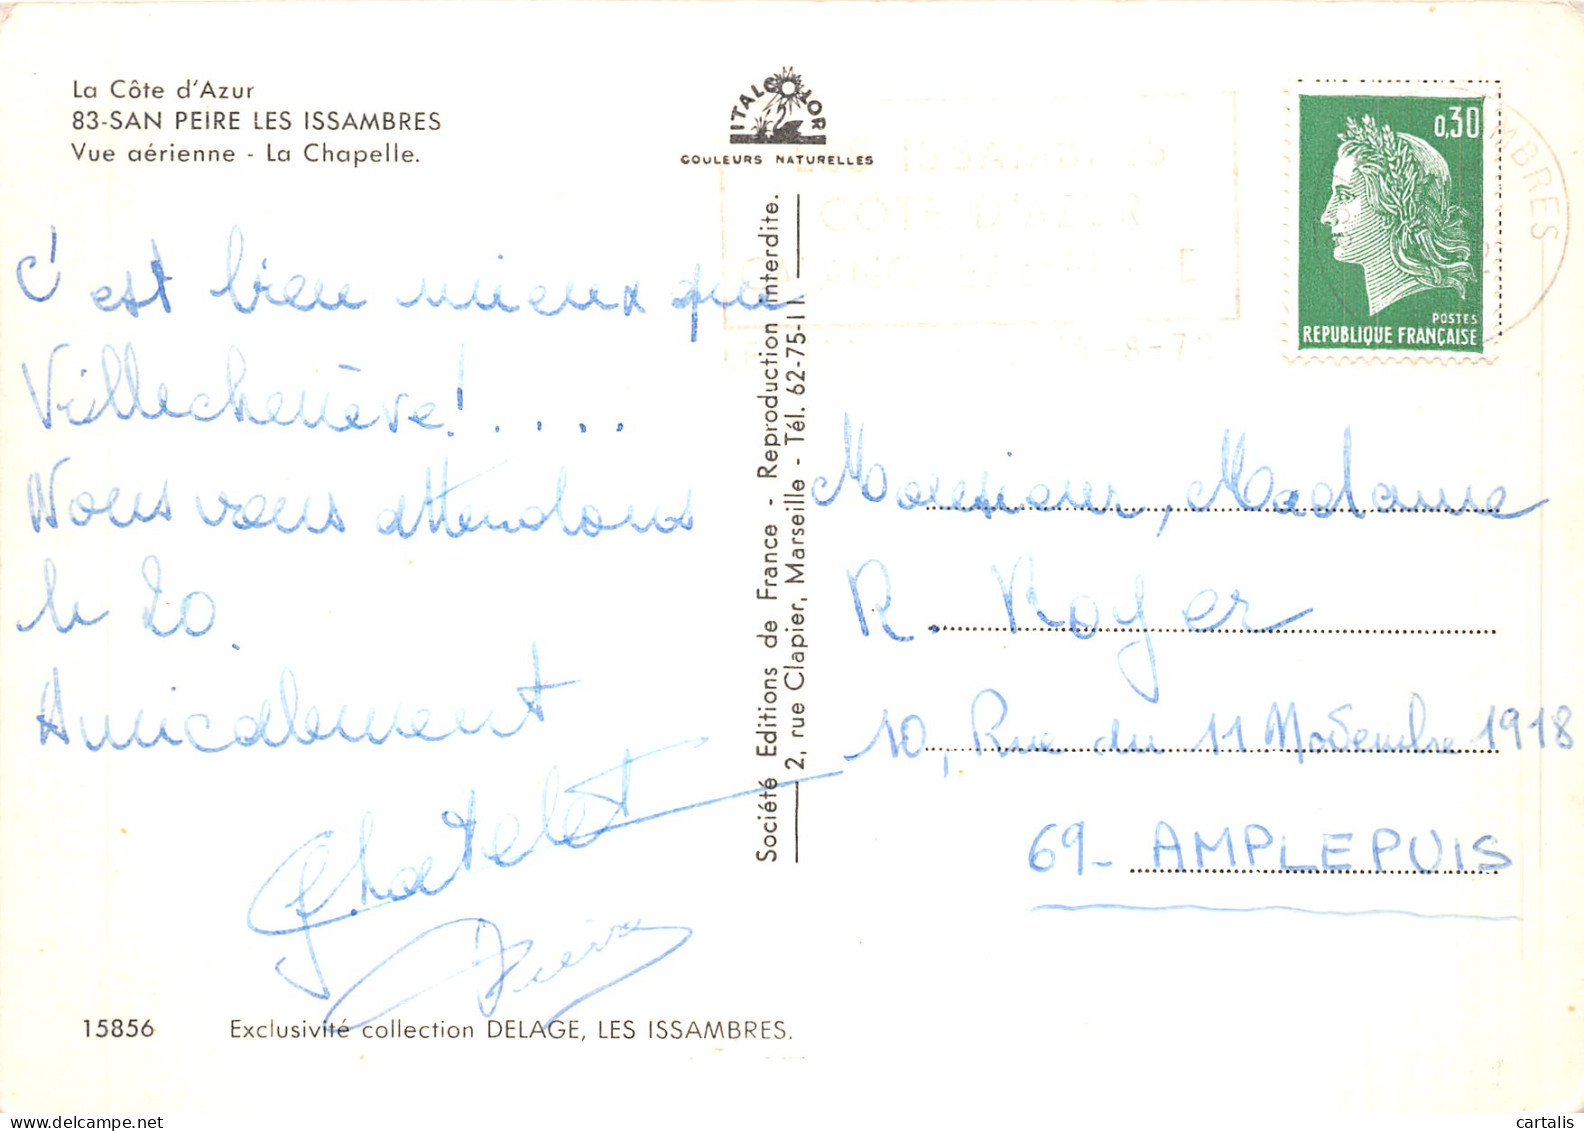 La Côte d'Azur
83-SAN PEIRE LES ISSAMBRES
Vue aérienne - La Chapelle.
ITALCOLOR
COULEURS NATURELLES
0,30
POSTES
REPUBLIQUE FRANÇAISE
MBRES
LES ISSAMBRES
CÔTE D'AZUR
-8-7
C'est bien mieux que
Villechenève! . . . .
Nous vous attendons
le 20.
Amicalement
Chatelet
Société Editions de France - Reproduction interdite.
2, rue Clapier, Marseille - Tél. 62-75-11
Monsieur, Madame
R. Royer
10, Rue du 11 Novembre 1918
69- AMPLEPUIS
15856
Exclusivité collection DELAGE, LES ISSAMBRES.
cartalis